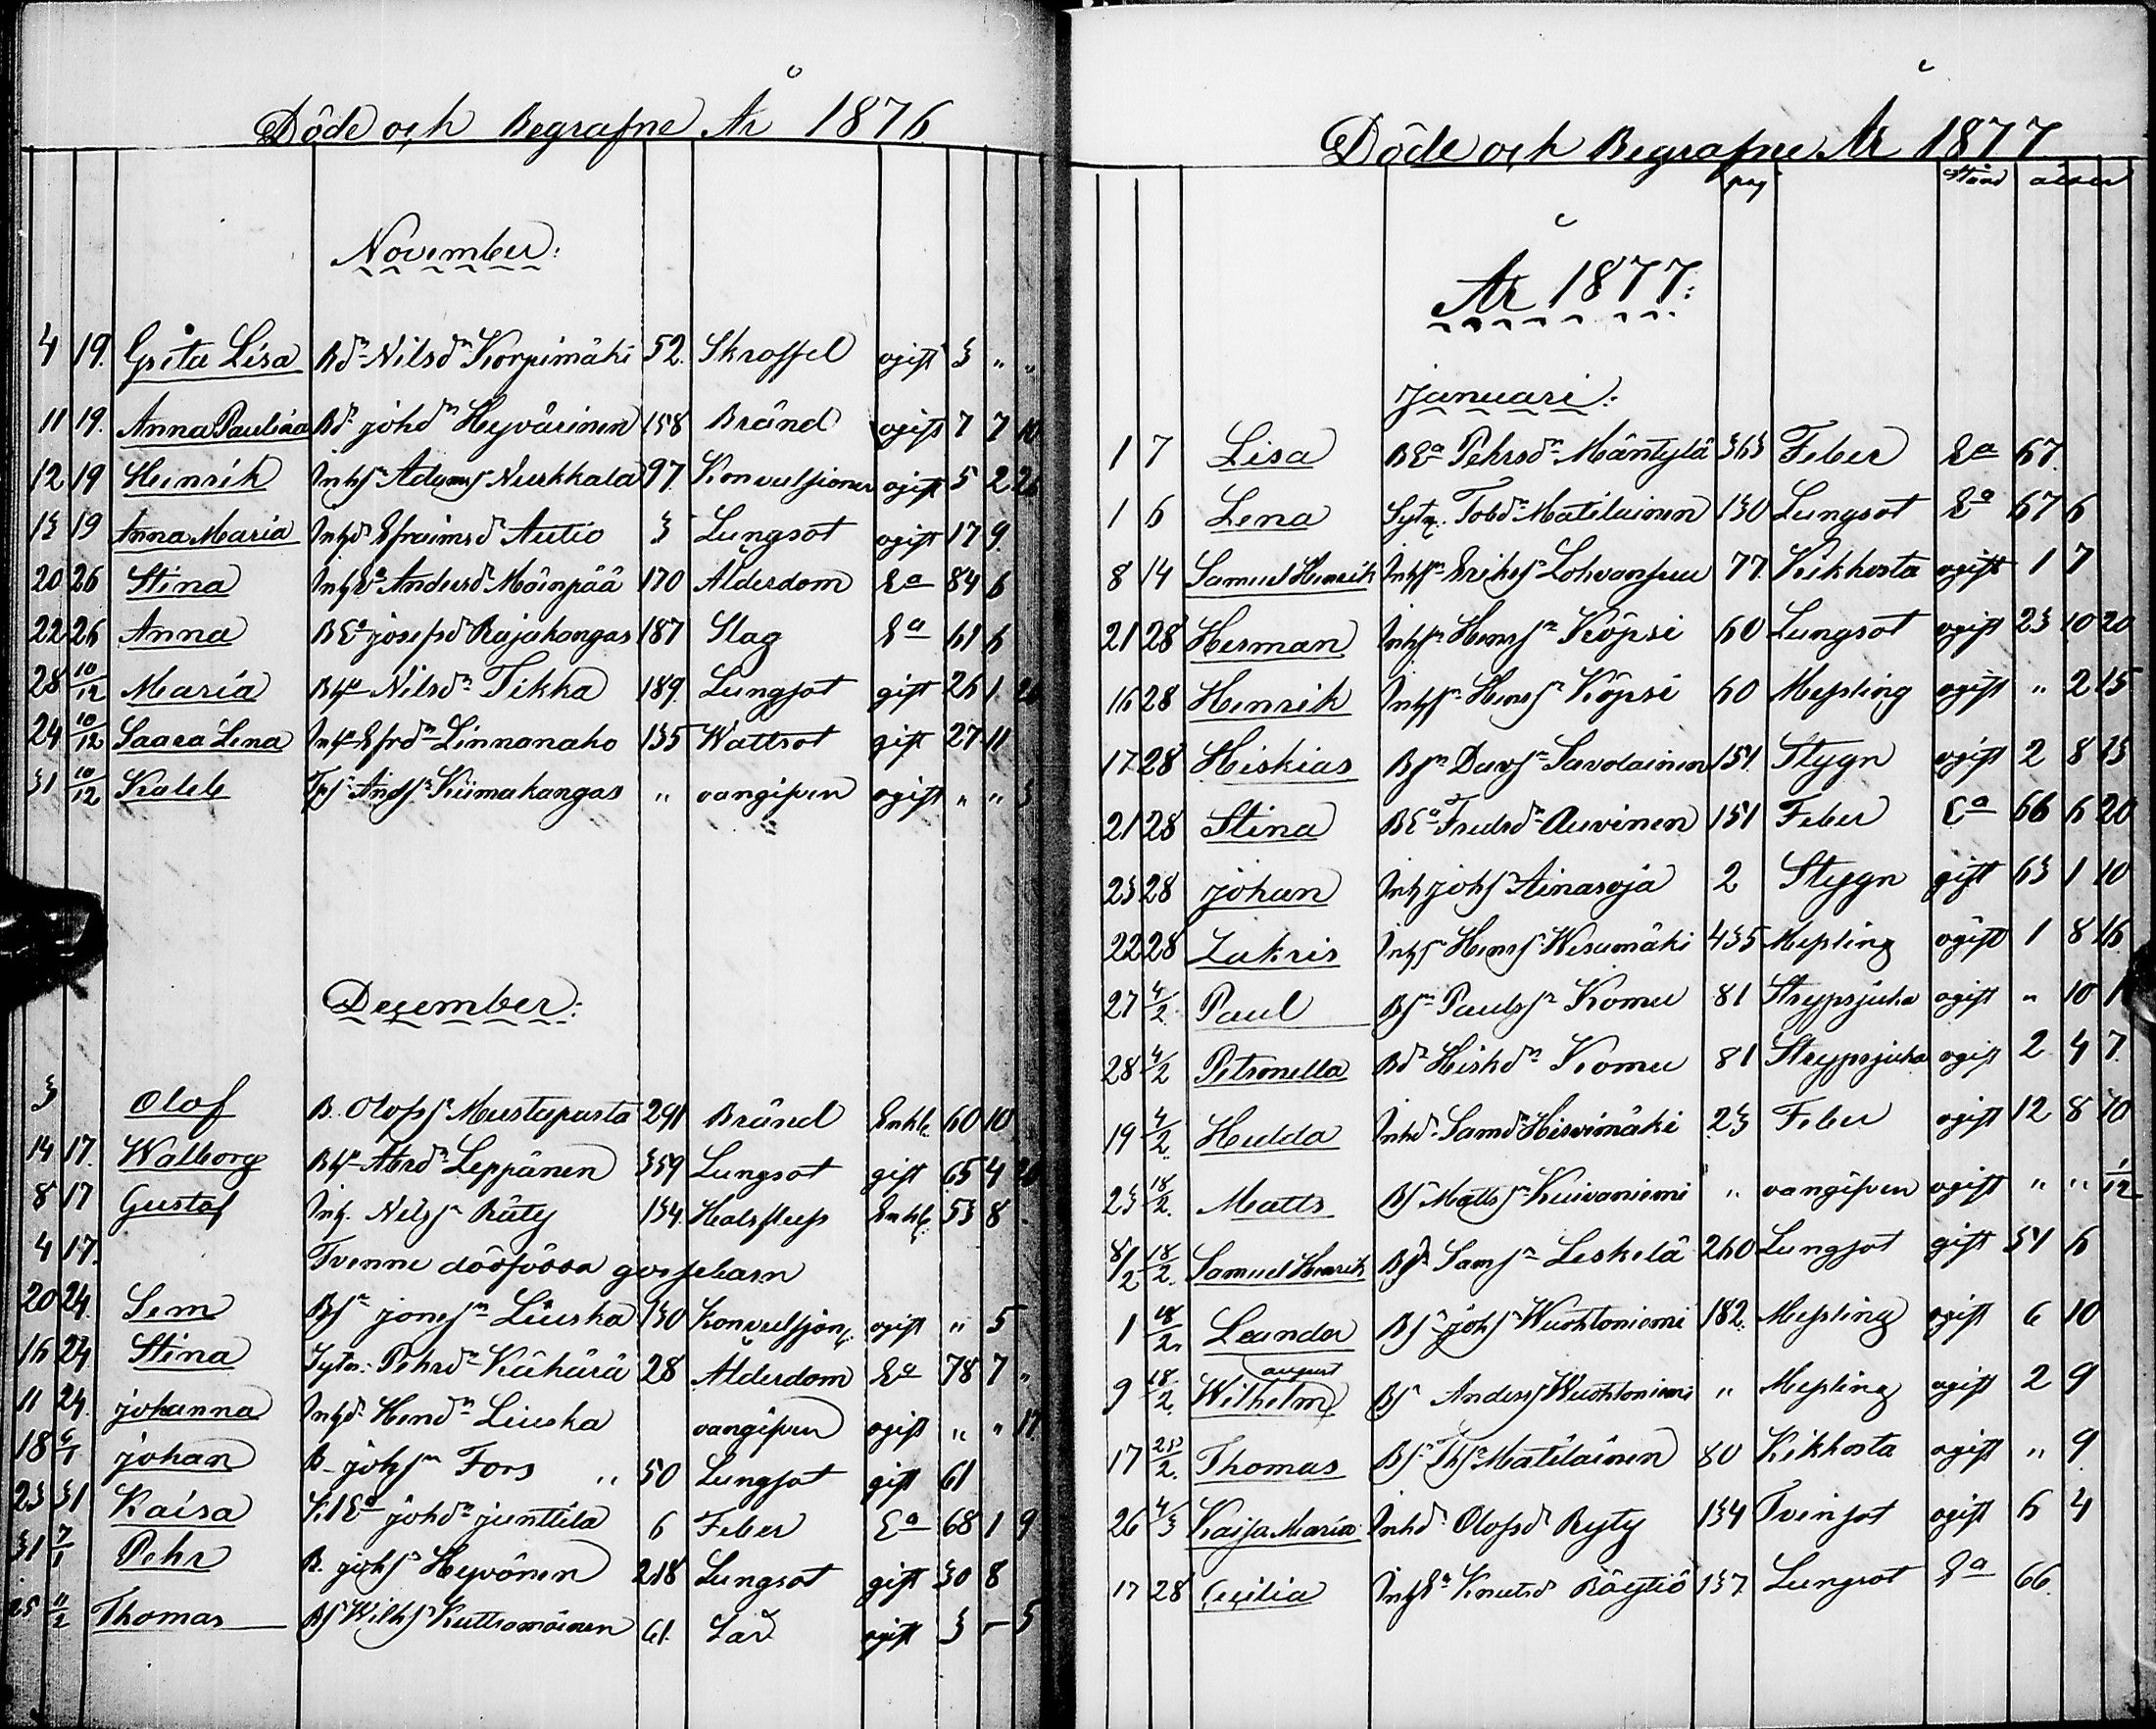 Döde och Begrafne År 1876
November:
4 19. Greta Lisa Bdr Nilsdr Korpimäki 52. Skroffel ogift 3 " "
11 19. Anna Paulina Bdr johdr Hyvärinen 158 Bränd ogift 7 7 10
12 19 Henrik Inhs Adams Nurkkala 97. Konvulsioner ogift 5 2 26
13 19 Anna Maria Inhdr Efraimsd Autio 3 Lungsot ogift 17 9.
20 26 Stina InhEa Andersdr Möinpää 170 Ålderdom Ea 84 6
22 26 Anna BEa josefsd Rajakangas 187 Slag Ea 61 6
28 10/12 Maria Bhu Nilsdr Tikka 189. Lungsot gift 26 1 26
24 10/12 Saara Lena Inhu Efrdr Linnanaho 135 Wattsot gift 27 11
31 10/12 Kaleb Andsn Kiimakangas " oangifven ogift " " 3
December:
3 Olof B. Olofsn Mustapasta 291 Bränd Enkl. 60 10
14 17. Walborg Bhu Abrdr Leppänen 359 Lungsot gift 65 4 26
8 17 Gustaf Inh. Nilsn Räty 134. Halsfluss Enkl. 53 8
4 17. Tvenne dödfödda gossebarn
20 24. Sem Bsn jonesn Liuska 130 Konvulsjon ogift " 5
16 24 Stina Sytn: Pehrdr Kähärä 28 Ålderdom Ea 78 7 "
11 24. johanna Inhdr Hendr Liuska oangifven ogift " " 17
18 6/1 johan B johsn Fors " 50 Lungsot gift 61
23 31 Kaisa johdr junttila 6 Feber Ea 68 1 9
31 7/1 Pehr B. johsn Heyvönen 218 Lungsot gift 30 8
25 11/2 Thomas Bs Wilhsn Kuttromöinen 61. ogift 3 – 5
Döde och Begrafne År 1877
pag Stånd ålder
År 1877:
januari:
1 7 Lisa BEa Pehrsdr Mäntylä 363 Feber Ea 67.
1 6 Lena Sytn. Tobdr Matilainen 130 Lungsot Ea 67 6
8 14 Samuel Henrik Inhsn Eriks Lohvansuu 77. Kikhosta ogift 1 7
21 28 Herman Inhsn Henrsn Köpsi 60 Lungsot ogift 23 10 20
16 28 Henrik Inhsn Henrsn Köpsi 60 Messling ogift " 2 15
17 28 Hiskias Bsn Davsn Savolainen 151. Stygn ogift 2 8 23
21 28 Stina BEa Fredsdr Auvinen 151 Feber Ea 66 6 20
23 28 johan Inh johsn Ainasoja 2 Stygn gift 63 1 10
22 28 Zakris Inhs Henrsn Wesumäki 435 Messling ogift 1 8 16
27 4/2 Paul Bsn Paulsn Komu 81 Strypsjuka ogift " 10 1
28 4/2 Petronella Bdr Hiskdr Komu 81 Strypsjuka ogift 2 4 7.
19 4/2 Hedda Inhdr Samdr Hirvimäki 23 Feber ogift 12 8 10
23 18/2. Matts Bs Mattsn Kuivaniemi " oangifven ogift " " 1/12
8/2 18/2. Samuel Henrik Bsn Samsn Leskelä 260 Lungsot gift 51 6
1 18/2. Leander Bsn johsn Wuohtoniemi 182. Messling ogift 6 10
august
9 18/2. Wilhelm Bsn Anderss Wuohtoniemi " Messling ogift 2 9
17 25/2. Thomas Bsn Thsn Matilainen 80 Kikhosta ogift " 9
26 4/3 Kaisa Maria Inhdr Olofsdr Ryty 134 Tvinsot ogift 6 4
17 28 Cecilia InhEa Knutsdr Röytiö 137. Lungsot Ea 66.